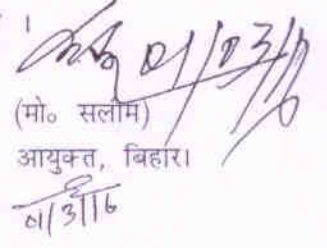 01/03/16
(मो० सलीम)
आयुक्त, बिहार।
01/3/16